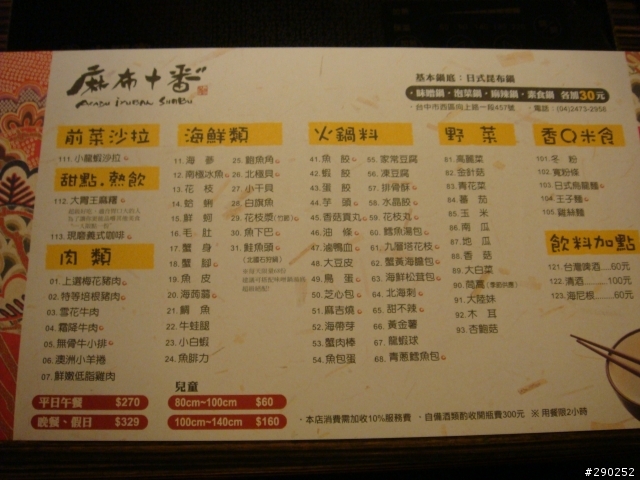 麻布十番
AZABU JYUBAN SHABU
基本鍋底：日式昆布鍋
・味噌鍋・泡菜鍋・麻辣鍋・素食鍋 各加30元
台中市西區向上路一段457號 電話：(04)2473-2956
前菜沙拉
111. 小龍蝦沙拉
甜點.熱飲
112. 大胃王麻糬
113. 現磨義式咖啡
肉類
01. 上選梅花豬肉
02. 特等培根豬肉
03. 雪花牛肉
04. 霜降牛肉
05. 無骨牛小排
06. 澳洲小羊捲
07. 鮮嫩低脂雞肉
海鮮類
11. 海蔘
12. 南極冰魚
13. 花枝
14. 蛤蜊
15. 鮮蚵
16. 毛肚
17. 蟹身
18. 蟹腳
19. 魚皮
20. 海茴薔
21. 鯛魚
22. 牛蛙腿
23. 小白蝦
24. 魚腓力
25. 鮑魚角
26. 北極貝
27. 小干貝
28. 白旗魚
29. 花枝漿(竹節)
30. 魚下巴
31. 鮭魚頭
(北國石狩鍋)
火鍋料
41. 魚餃
42. 蝦餃
43. 燕餃
44. 芋頭
45. 香菇貢丸
46. 油條
47. 滷鴨血
48. 大豆皮
49. 鳥蛋
50. 芝心包
51. 麻吉燒
52. 海帶芽
53. 蟹肉棒
54. 魚包蛋
55. 家常豆腐
56. 凍豆腐
57. 排骨酥
58. 水晶餃
59. 花枝丸
60. 鱈魚滿包
61. 九層塔花枝
62. 蟹黃海膽包
63. 海鮮松茸包
64. 北海刺
65. 甜不辣
66. 黃金薯
67. 龍蝦球
68. 青蔥鱈魚包
野菜
81. 高麗菜
82. 金針菇
83. 青花菜
84. 蕃茄
85. 玉米
86. 南瓜
87. 地瓜
88. 香菇
89. 大白菜
90. 茼蒿(季節供應)
91. 大陸妹
92. 木耳
93. 杏鮑菇
香Q米食
101. 冬粉
102. 寬粉條
103. 日式烏龍麵
104. 王子麵
105. 雞絲麵
飲料加點
121. 台灣啤酒....60元
122. 清酒......100元
123. 海尼根.....60元
平日午餐 $270
晚餐、假日 $329
兒童
80cm~100cm $60
100cm~140cm $160
・本店消費需加收10%服務費 ・自備酒類酌收開瓶費300元 ※用餐限2小時
#290252